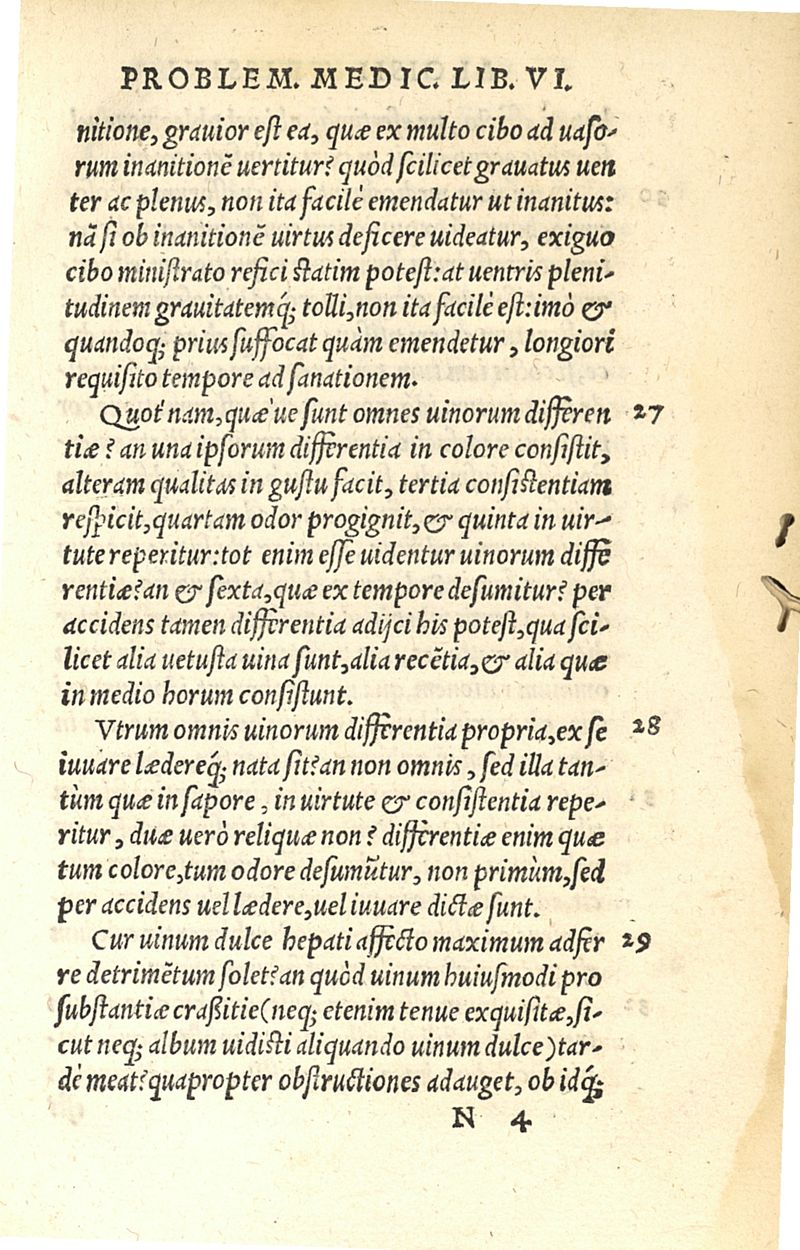 PROBLEM. MEDIC. LIB. VI.
nitione, grauior est ea, quæ ex multo cibo ad uaso-
rum inanitionē uertitur? quòd scilicet grauatus uen
ter ac plenus, non ita facilè emendatur ut inanitus:
nā si ob inanitionē uirtus deficere uideatur, exiguo
cibo ministrato refici statim potest: at uentris pleni-
tudinem grauitatemq́; tolli, non ita facilè est: imò &
quandoq; prius suffocat quàm emendetur, longiori
requisito tempore ad sanationem.
Quot nam, quæ ue sunt omnes uinorum differen 27
tiæ? an una ipsorum differentia in colore consistit,
alteram qualitas in gustu facit, tertia consistentiam
respicit, quartam odor progignit, & quinta in uir-
tute reperitur: tot enim esse uidentur uinorum diffe
rentiæ? an & sexta, quæ ex tempore desumitur? per
accidens tamen differentia adijci his potest, qua sci-
licet alia uetusta uina sunt, alia recētia, & alia quæ
in medio horum consistunt.
Vtrum omnis uinorum differentia propria, ex se 28
iuuare lædereq́; nata sit? an non omnis, sed illa tan-
tùm quæ in sapore, in uirtute & consistentia repe-
ritur, duæ uerò reliquæ non? differentiæ enim quæ
tum colore, tum odore desumūtur, non primùm, sed
per accidens uel lædere, uel iuuare dictæ sunt.
Cur uinum dulce hepati affecto maximum adfer 29
re detrimētum solet? an quòd uinum huiusmodi pro
substantiæ craßitie (neq; etenim tenue exquisitæ, si-
cut neq; album uidisti aliquando uinum dulce) tar-
dè meat? quapropter obstructiones adauget, ob idq́;
N 4